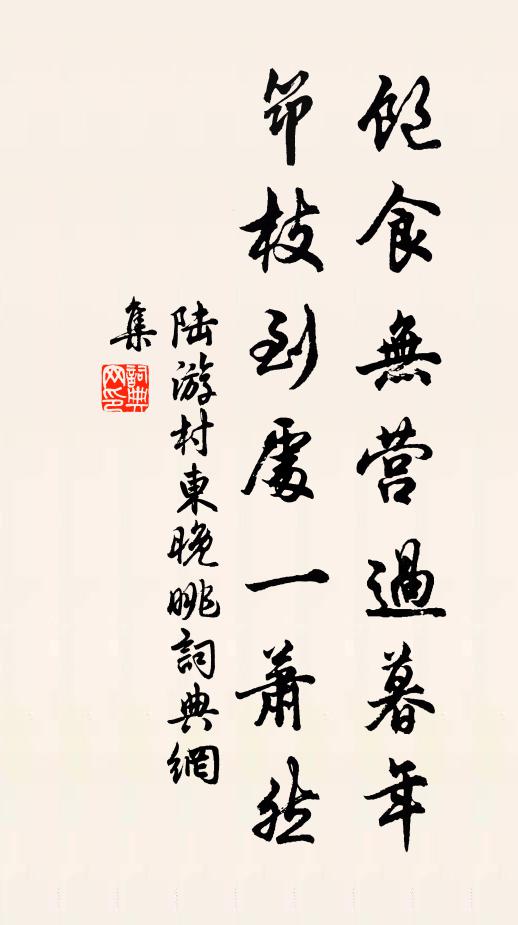 飽食無营過暮年
笻枝到處一蕭然
陆游村東晚眺詞典網
集
詞典网印